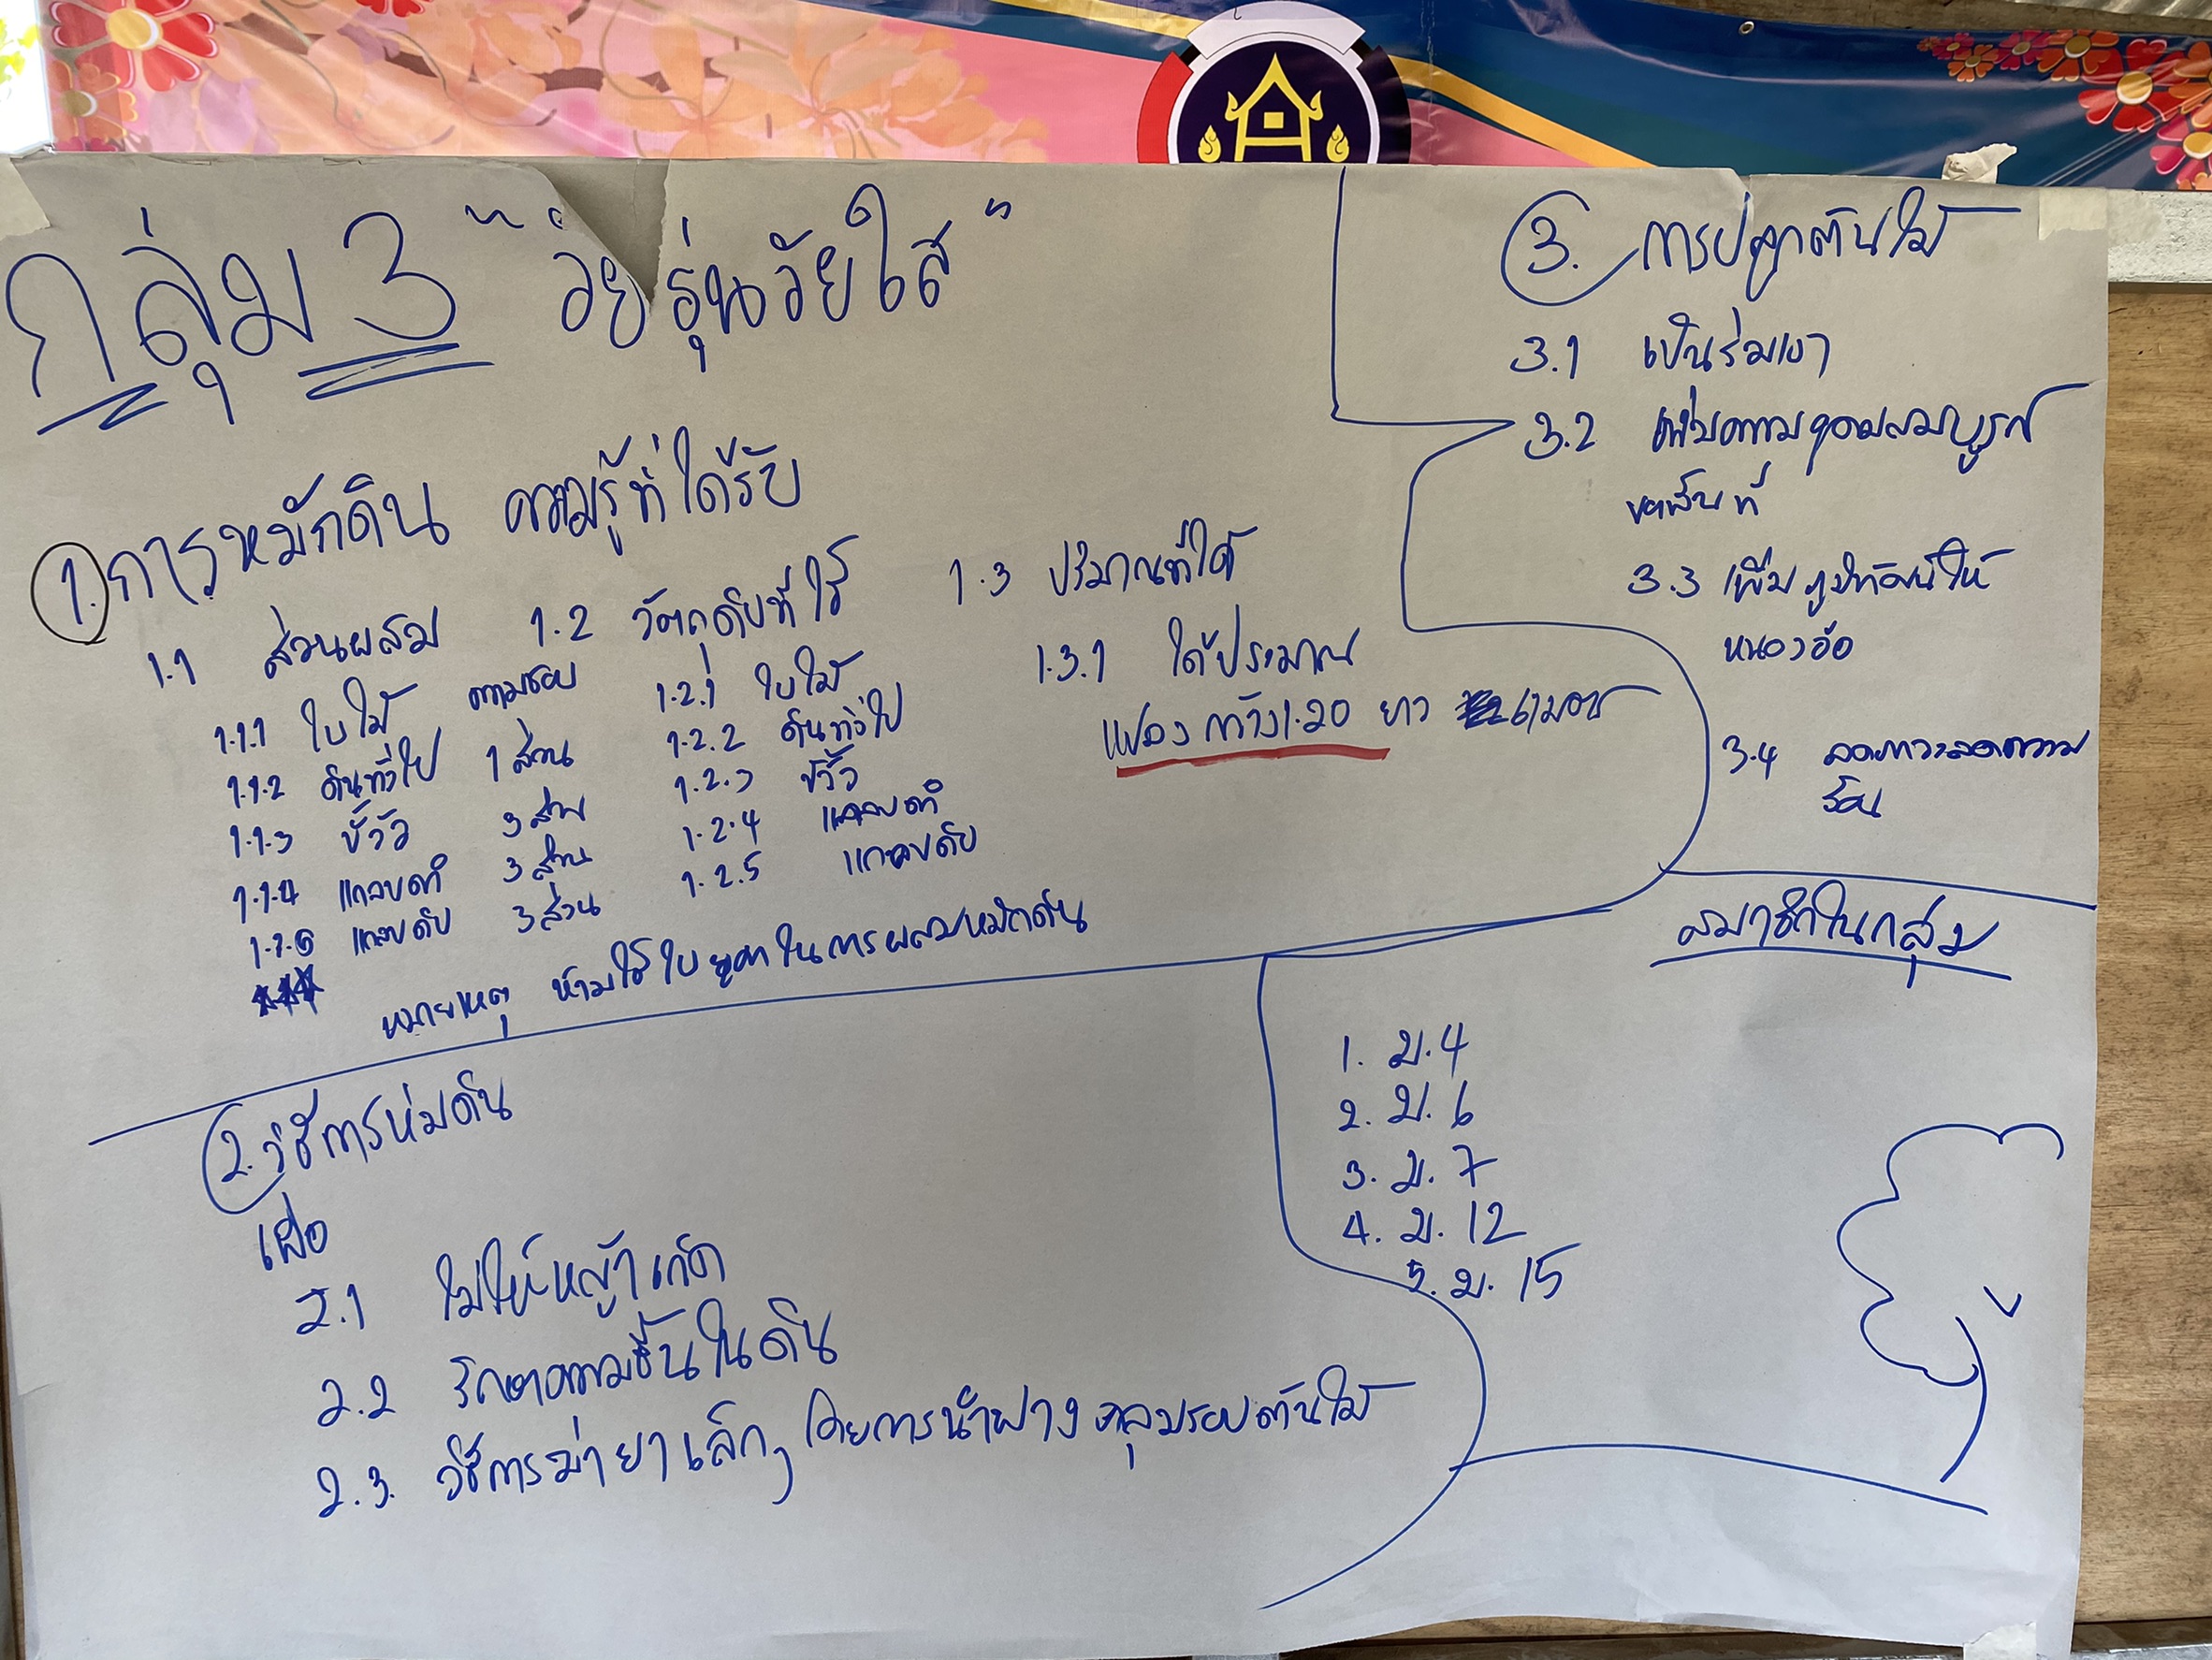 กลุ่ม 3 "วัยรุ่นวัยใส"
1. การหมักดิน ความรู้ที่ได้รับ
1.1 ส่วนผสม
1.1.1 ใบไม้ ตามชอบ
1.1.2 ดินทั่วไป 1 ส่วน
1.1.3 ขี้วัว 3 ส่วน
1.1.4 แกลบดำ 3 ส่วน
1.1.5 แกลบดิบ 3 ส่วน
1.2 วัตถุดิบที่ใช้
1.2.1 ใบไม้
1.2.2 ดินทั่วไป
1.2.3 ขี้วัว
1.2.4 แกลบดำ
1.2.5 แกลบดิบ
1.3 ปริมาณที่ได้
1.3.1 ได้ประมาณ
แปลง กว้าง 1.20 ยาว
*** หมายเหตุ ห้ามใช้ใบยูคาในการผสมหมักดิน
2. วิธีการห่มดิน
เพื่อ
2.1 ไม่ให้หญ้าเกิด
2.2 รักษาความชื้นในดิน
2.3. วิธีการฆ่าหญ้าเล็กๆ โดยการนำฟางคลุมรอบต้นไม้
3. การปลูกต้นไม้
3.1 เป็นร่มเงา
3.2 เพิ่มความอุดมสมบูรณ์
พื้นที่
3.3 เพิ่มภูมิทัศน์ให้
หนองอ้อ
3.4 ลดภาวะลดความ
ร้อน
สมาชิกในกลุ่ม
1. ม.4
2. ม.6
3. ม.7
4. ม.12
5. ม.15